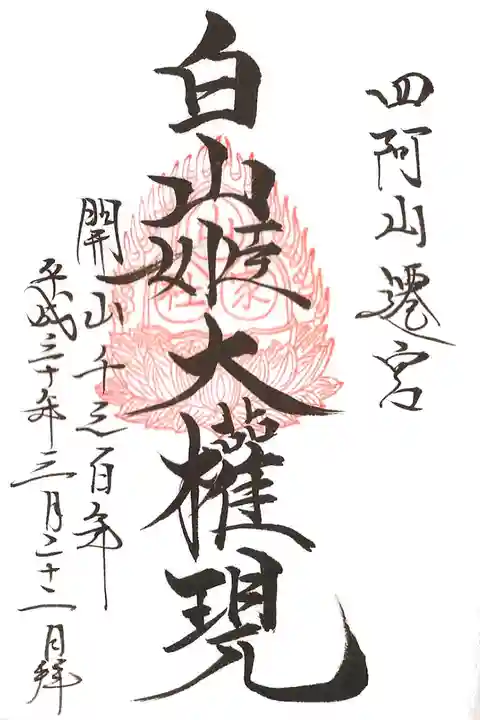 四阿山遷宮
白山媛大權現
開山千三百年
平成三十年三月二十二日拜